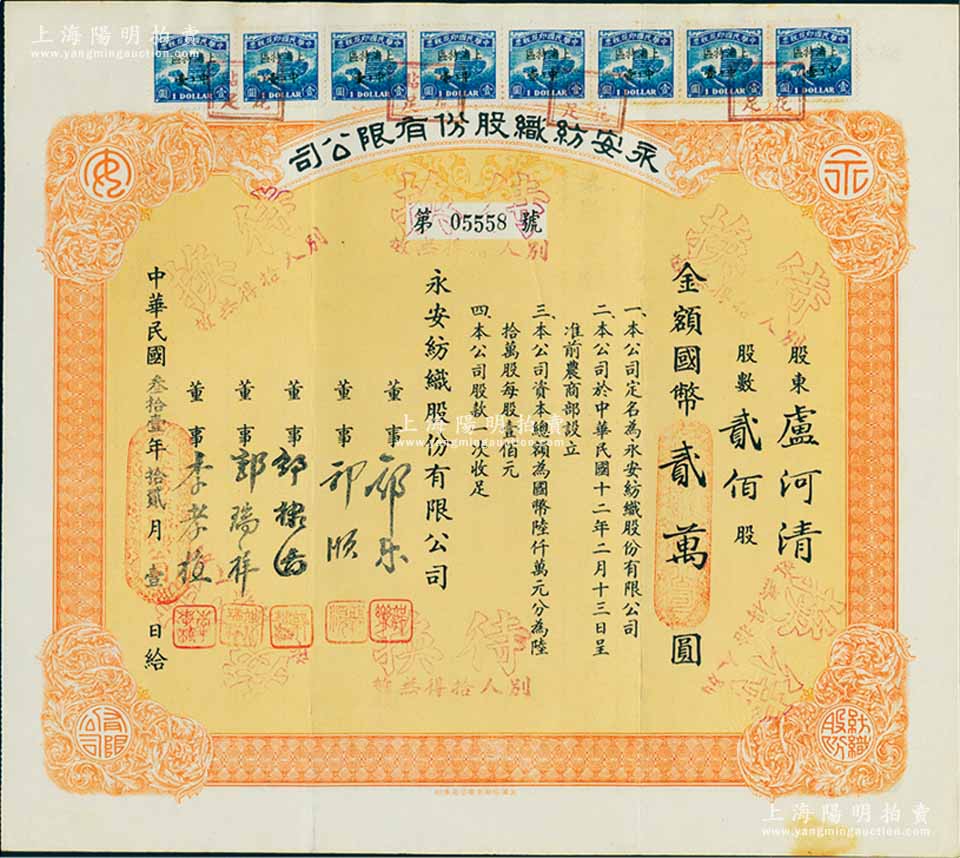 上海陽明拍賣
www.yangmingauction.com
上海陽明拍賣
www.yangmingauction.com
中華民國印花稅票
上海特區
中東
壹 1 DOLLAR 圓
永安紡織股份有限公司
永
安
第 05558 號
股東 盧河清
股數 貳佰股
金額國幣貳萬圓
一、本公司定名為永安紡織股份有限公司
二、本公司於中華民國十二年二月十三日呈
准前農商部設立
三、本公司資本總額為國幣陸仟萬元分為陸
拾萬股每股壹佰元
四、本公司股款一次收足
永安紡織股份有限公司
董事 郭樂
董事 郭順
董事
董事 郭瑞祥
董事
中華民國叁拾壹年拾貳月壹日給
待換
別人拾得無效
紡織股份
有限公司
上海陽明拍賣
www.yangmingauction.com
上海陽明拍賣
www.yangmingauction.com